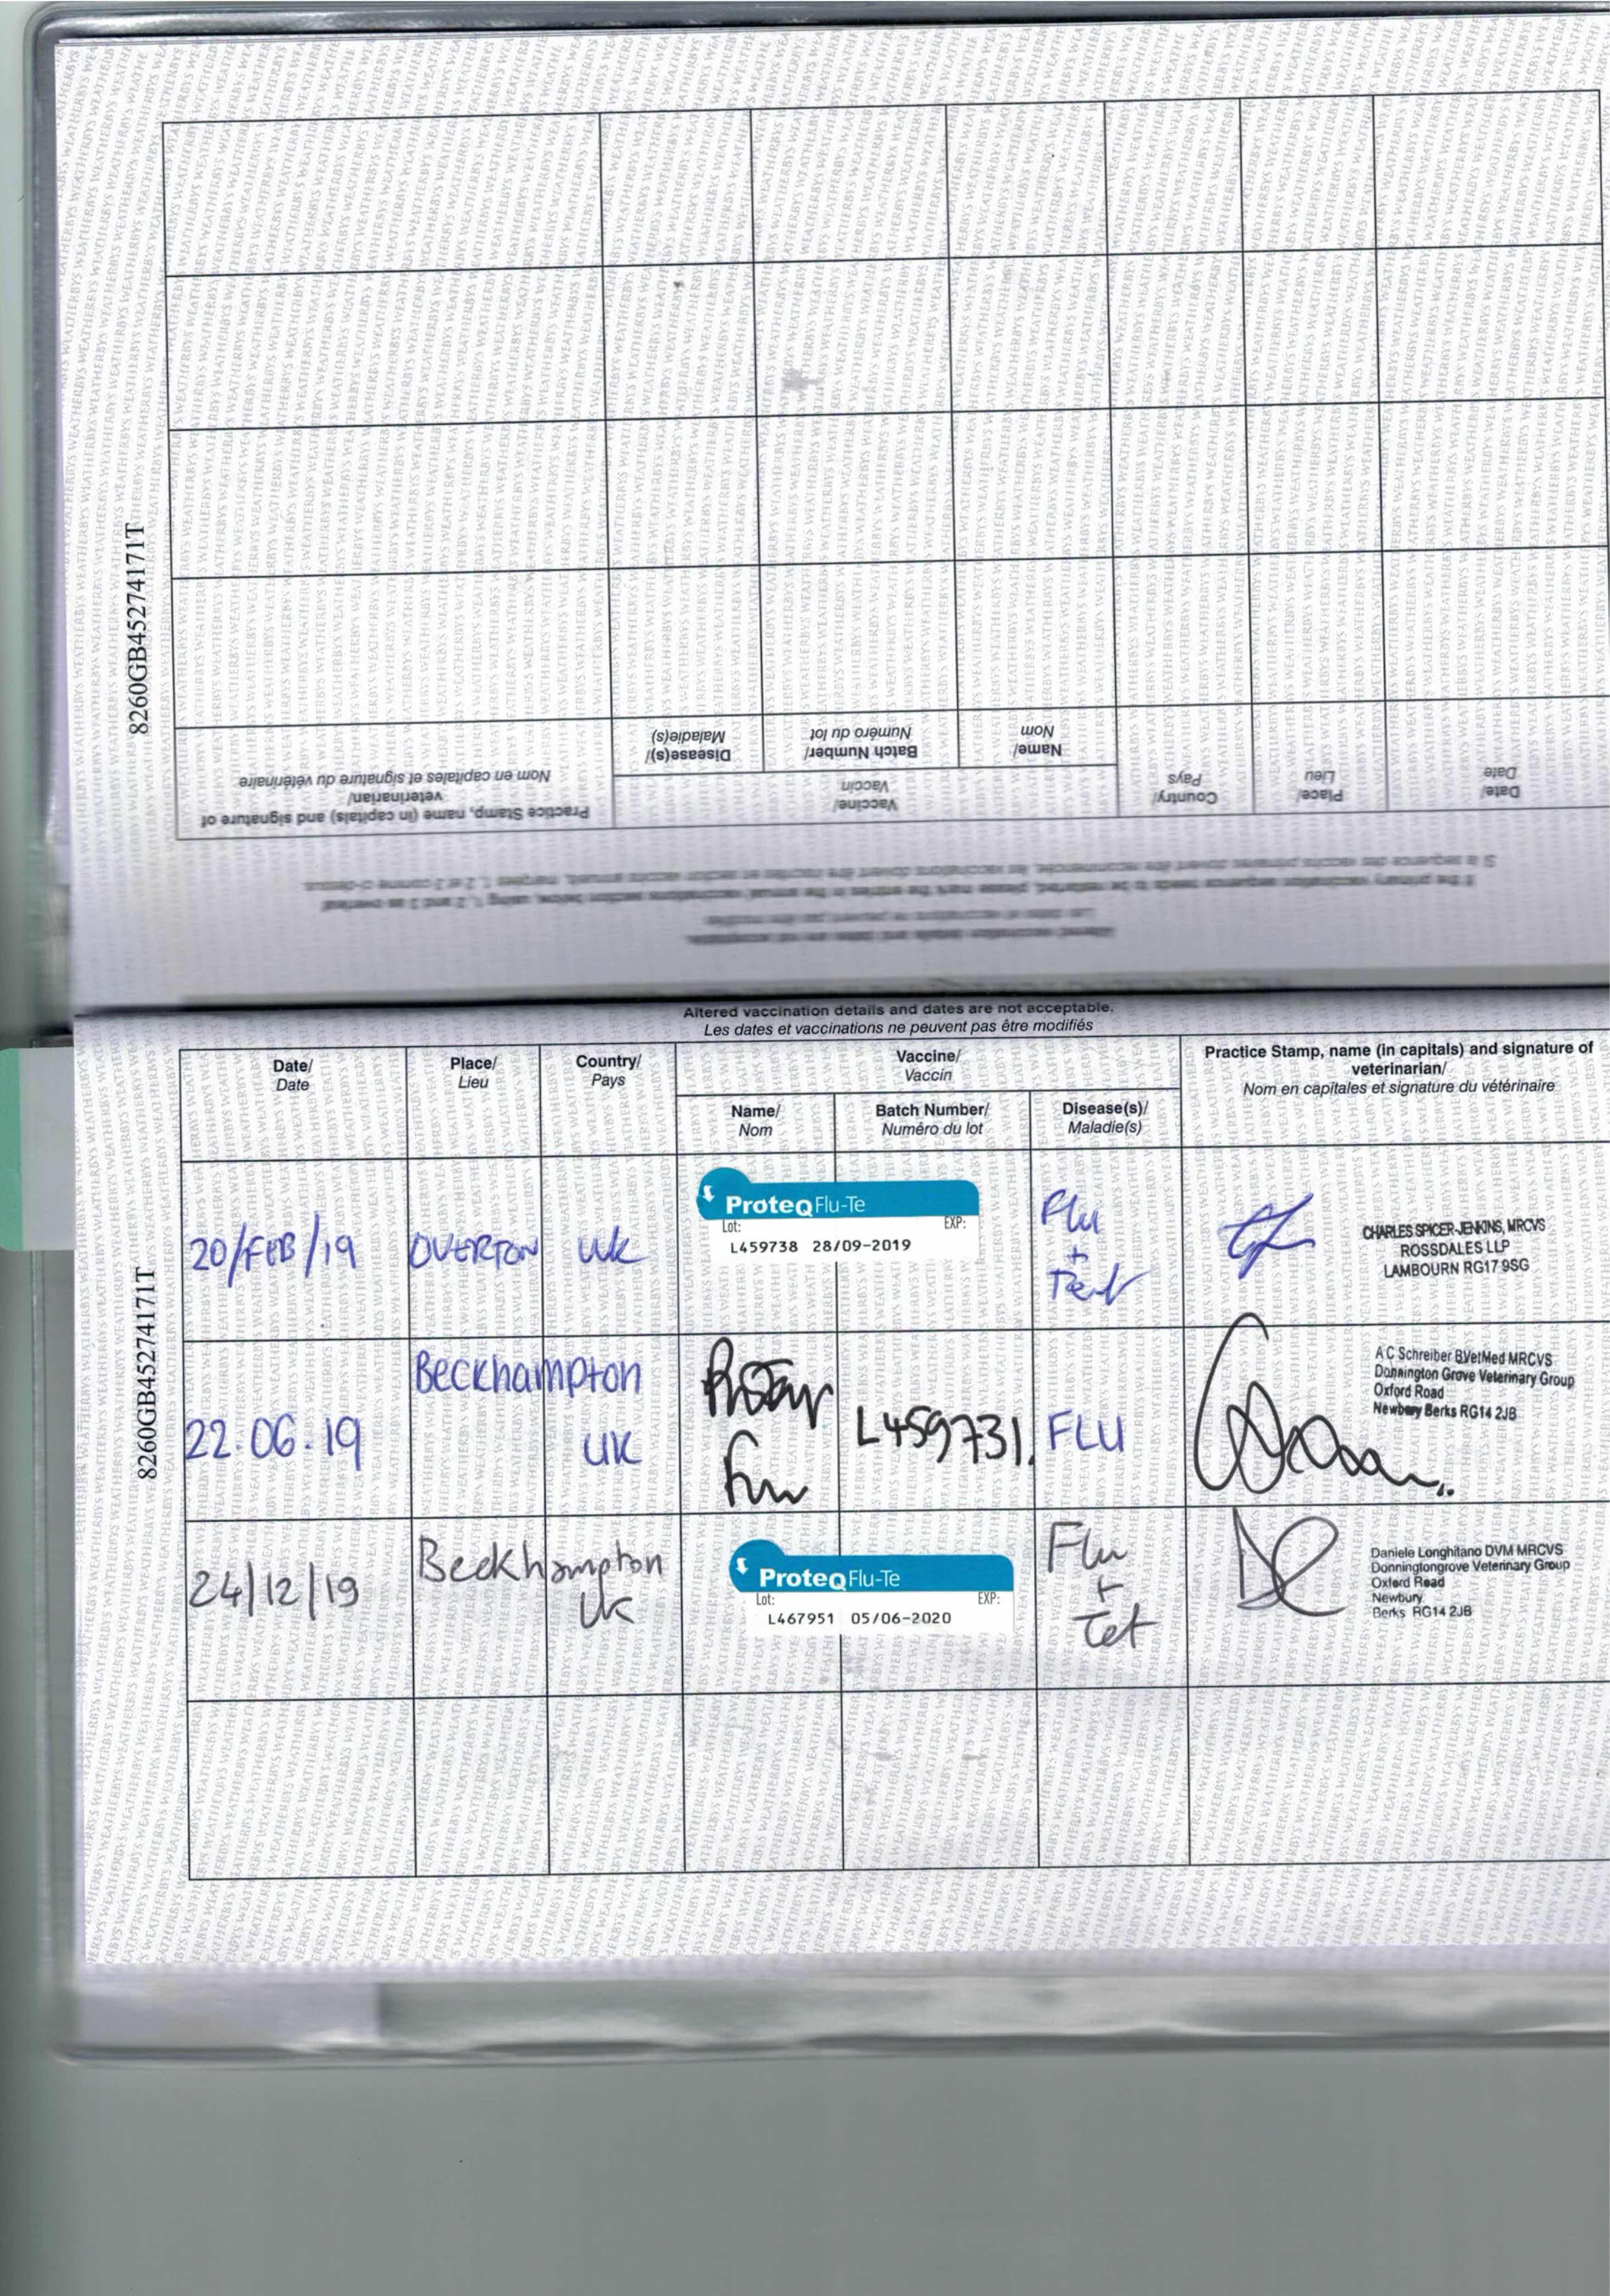 8260GB45274171T
Practice Stamp, name (in capitals) and signature of
veterinarian/
Nom en capitales et signature du vétérinaire
Vaccine/
Vaccin
Disease(s)/
Maladie(s)
Batch Number/
Numéro du lot
Name/
Nom
Country/
Pays
Place/
Lieu
Date/
Date
Si la séquence des vaccins primaires doivent être recommencée, les vaccinations doivent être inscrites et section vaccins annuels, marqées 1, 2 et 3 comme ci-dessus
If the primary vaccination sequence needs to be restarted, please mark the entries in the annual vaccinations section below, using 1, 2 and 3 as overleaf
Les dates et vaccinations ne peuvent pas être modifiés
Altered vaccination details and dates are not acceptable.
Altered vaccination details and dates are not acceptable.
Les dates et vaccinations ne peuvent pas être modifiés
8260GB45274171T
Date/
Date
Place/
Lieu
Country/
Pays
Vaccine/
Vaccin
Name/
Nom
Batch Number/
Numéro du lot
Disease(s)/
Maladie(s)
Practice Stamp, name (in capitals) and signature of
veterinarian/
Nom en capitales et signature du vétérinaire
20/FEB/19 OVERTON UK
ProteqFlu-Te
Lot: EXP:
L459738 28/09-2019
Flu
+
Tet
CHARLES SPICER-JENKINS, MRCVS
ROSSDALES LLP
LAMBOURN RG17 9SG
22.06.19
Beckhampton
UK
L459731.
FLU
A C Schreiber BVetMed MRCVS
Donnington Grove Veterinary Group
Oxford Road
Newbury Berks RG14 2JB
24/12/19
Beckhampton
UK
ProteqFlu-Te
Lot: EXP:
L467951 05/06-2020
Flu
+
Tet
Daniele Longhitano DVM MRCVS
Donningtongrove Veterinary Group
Oxford Road
Newbury
Berks RG14 2JB